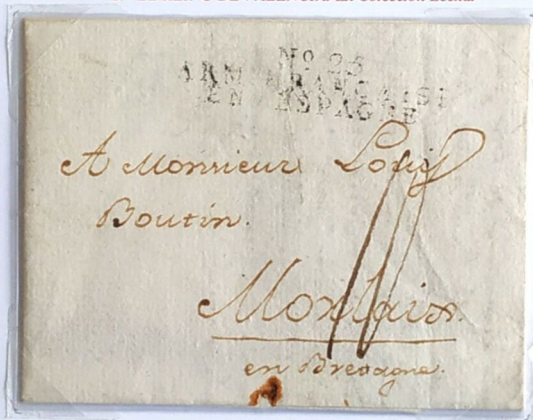 Nº 25
ARM FRANÇAISE
EN ESPAGNE
A Monsieur Louis
Boutin.
Morlaix.
en Bretagne.